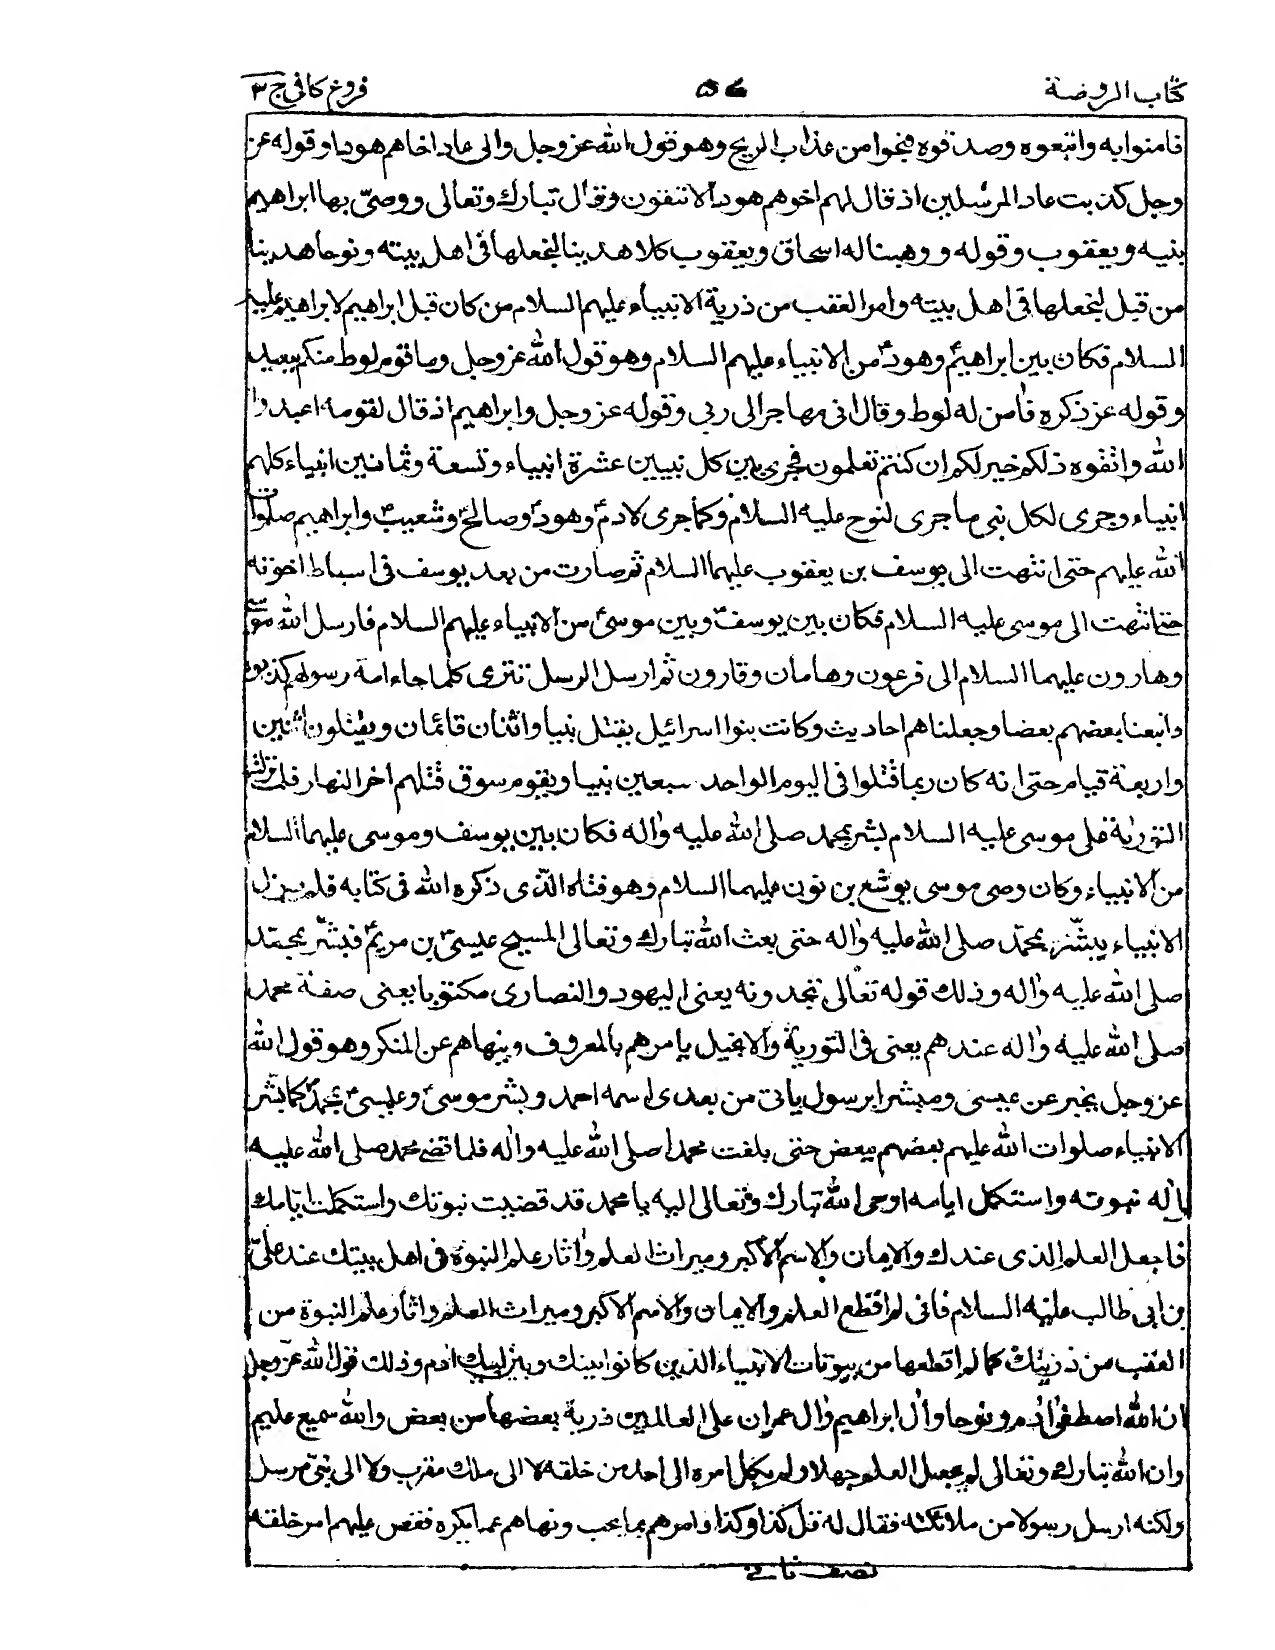 كتاب الروضة ٥٤ فروع كافى ج ٣
فامنوا به واتبعوه وصدقوه فنجوا من عذاب الريح وهو قول الله عز وجل والى عاد اخاهم هودا وقوله عز
وجل كذبت عاد المرسلين اذ قال لهم اخوهم هود الا تتقون وقال تبارك وتعالى ووصىّ بها ابراهيم
بنيه ويعقوب وقوله ووهبنا له اسحاق ويعقوب كلا هدينا لنجعلها فى اهل بيته ونوحا هدينا
من قبل لنجعلها فى اهل بيته وامر العقب من ذرية الانبياء عليهم السلام من كان قبل ابراهيم لابراهيم عليه
السلام فكان بين ابراهيم وهود من الانبياء عليهم السلام وهو قول الله عز وجل وما قوم لوط منكم ببعيد
وقوله عز ذكره فامن له لوط وقال انى مهاجر الى ربى وقوله عز وجل وابراهيم اذ قال لقومه اعبدوا
الله واتقوه ذلكم خير لكم ان كنتم تعلمون فجرى بين كل نبيين عشرة انبياء وتسعة وثمانين انبياء كلهم
انبياء وجرى لكل نبى ما جرى لنوح عليه السلام وكما جرى لادم وهود وصالح وشعيب وابراهيم صلوات
الله عليهم حتى انتهت الى يوسف بن يعقوب عليهما السلام ثم صارت من بعد يوسف فى اسباط اخوته
حتى انتهت الى موسى عليه السلام فكان بين يوسف وبين موسى من الانبياء عليهم السلام فارسل الله موسى
وهارون عليهما السلام الى فرعون وهامان وقارون ثم ارسل الرسل تترى كلما جاء امة رسولهم كذبوه
واتبعنا بعضهم بعضا وجعلناهم احاديث وكانت بنوا اسرائيل يقتل نبيا واثنان قائمان ويقتلون اثنين
واربعة قيام حتى انه كان ربما قتلوا فى اليوم الواحد سبعين نبيا ويقوم سوق قتلهم اخر النهار فلما نزلت
التورية على موسى عليه السلام بشر بمحمد صلى الله عليه واله فكان بين يوسف وموسى عليهما السلام
من الانبياء وكان وصى موسى يوشع بن نون عليهما السلام وهو فتاه الذى ذكره الله فى كتابه فلم يزل
الانبياء يبشر بمحمد صلى الله عليه واله حتى بعث الله تبارك وتعالى المسيح عيسى بن مريم فبشر بمحمد
صلى الله عليه واله وذلك قوله تعالى تجدونه يعنى اليهود والنصارى مكتوبا يعنى صفة محمد
صلى الله عليه واله عندهم يعنى فى التورية والانجيل يامرهم بالمعروف وينهاهم عن المنكر وهو قول الله
عز وجل يخبر عن عيسى ومبشرا برسول ياتى من بعدى اسمه احمد وبشر موسى وعيسى بمحمد كما بشر
الانبياء صلوات الله عليهم بعضهم ببعض حتى بلغت محمدا صلى الله عليه واله فلما قضى محمد صلى الله عليه
واله نبوته واستكمل ايامه اوحى الله تبارك وتعالى اليه يا محمد قد قضيت نبوتك واستكملت ايامك
فاجعل العلم الذى عندك والايمان والاسم الاكبر وميراث العلم واثار علم النبوة فى اهل بيتك عند على
بن ابى طالب عليه السلام فانى لم اقطع العلم والايمان والاسم الاكبر وميراث العلم واثار علم النبوة من
العقب من ذريتك كما لم اقطعها من بيوتات الانبياء الذين كانوا بينك وبين ابيك ادم وذلك قول الله عز وجل
ان الله اصطفى ادم ونوحا وال ابراهيم وال عمران على العالمين ذرية بعضها من بعض والله سميع عليم
وان الله تبارك وتعالى لم يجعل العلم جهلا ولم يكل امره الى احد من خلقه لا الى ملك مقرب ولا الى نبى مرسل
ولكنه ارسل رسولا من ملائكته فقال له قل كذا وكذا وامرهم بما يحب ونهاهم عما يكره فقص عليهم امر خلقه
نصف ثانى